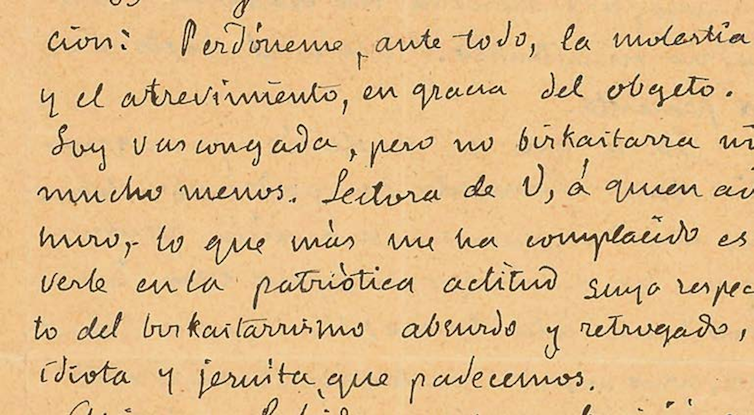 cion: Perdóneme, ante todo, la molestia
y el atrevimiento, en gracia del obgeto.
Soy vascongada, pero no birkaitarra ni
mucho menos. Lectora de V, á quien ad
miro, lo que más me ha complacido es
verle en la patriótica actitud suya respec
to del birkaitarrismo absurdo y retrogado,
idiota y jesuita, que padecemos.